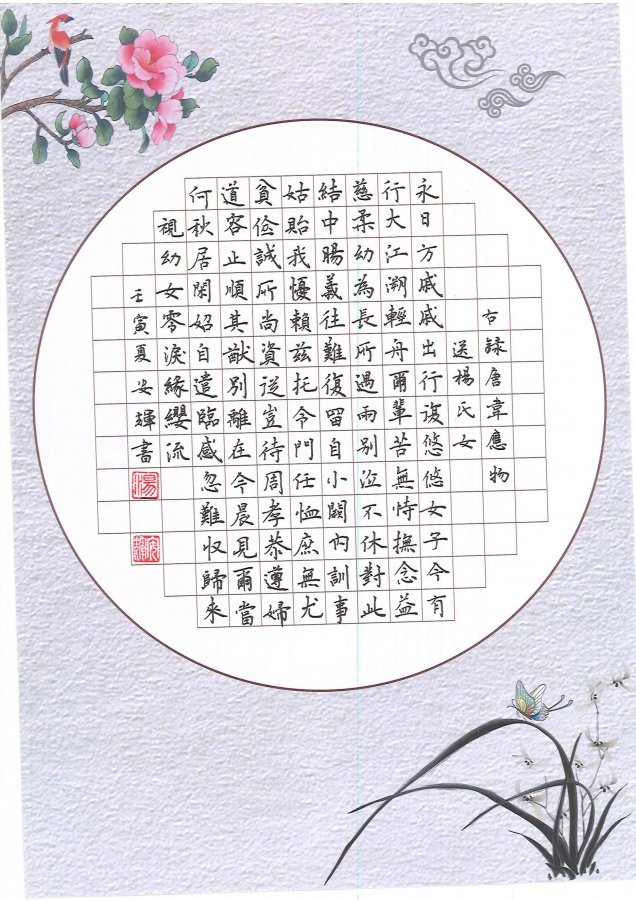 古錄唐韋應物
送楊氏女
永日方戚戚出行復悠悠女子今有
行大江溯輕舟爾輩苦無恃撫念益
慈柔幼為長所遇兩別泣不休對此
結中腸義往難復留自小闕內訓事
姑貽我懮賴茲托令門任恤庶無尤
貧儉誠所尚資從豈待周孝恭遵婦
道容止順其猷別離在今晨見爾當
何秋居閑始自遣臨感忽難収歸來
視幼女零淚緣纓流
壬寅夏安輝書